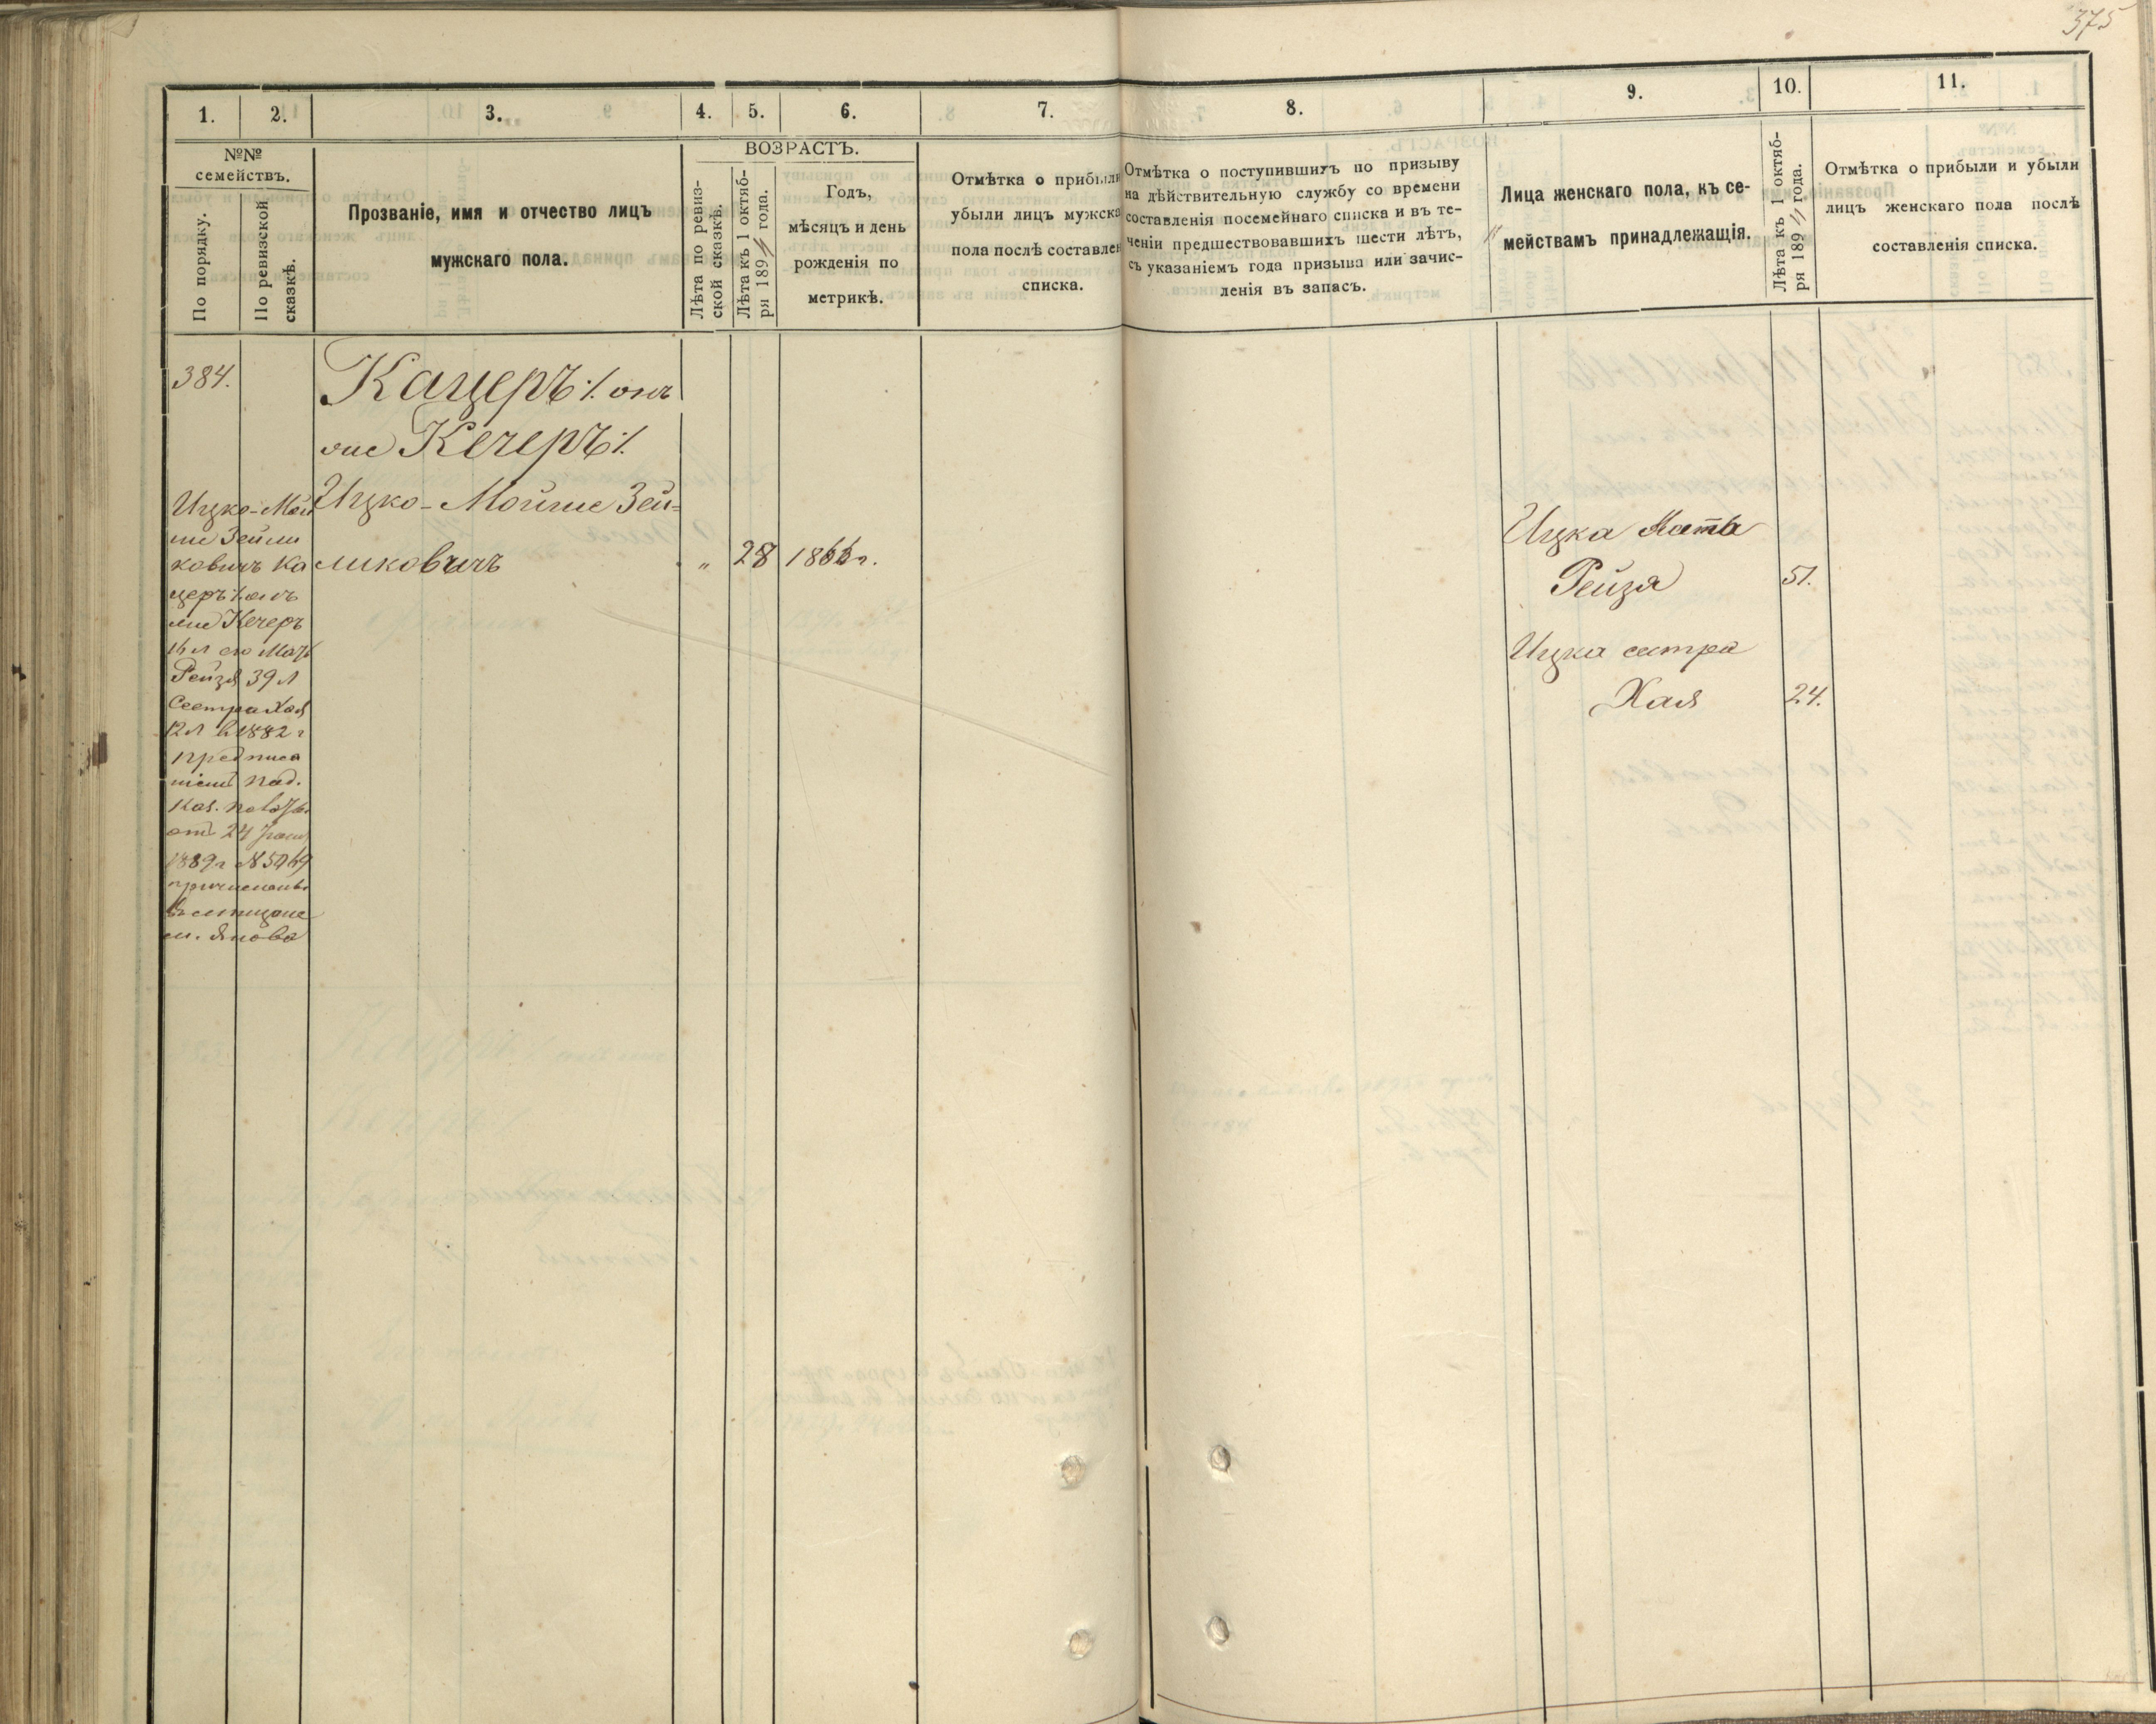 375
1. 2. 3. 4. 5. 6. 7. 8. 9. 10. 11.
№№
семействъ.
По порядку.
По ревизской
сказкѣ.
Прозваніе, имя и отчество лицъ
мужскаго пола.
ВОЗРАСТЪ.
Лѣта по ревиз-
ской сказкѣ.
Лѣта къ 1 октяб-
ря 189 года.
Годъ,
мѣсяцъ и день
рожденія по
метрикѣ.
Отмѣтка о прибыли
убыли лицъ мужска
пола послѣ составлен
списка.
Отмѣтка о поступившихъ по призыву
на дѣйствительную службу со времени
составленія посемейнаго списка и въ те-
ченіи предшествовавшихъ шести лѣтъ,
съ указаніемъ года призыва или зачис-
ленія въ запасъ.
Лица женскаго пола, къ се-
мействамъ принадлежащія.
Лѣта къ 1 октяб-
ря 189 года.
Отмѣтка о прибыли и убыли
лицъ женскаго пола послѣ
составленія списка.
384.
Кацеръ ./. онъ
же Кечеръ ./.
Ицко-Мойше Зей=
ликовичъ " 28 1866 г.
Ицко-Мой
ше Зейли
ковичъ Ка
церъ ./. онъ
же Кечеръ
16 л его Мать
Рейзя 39 л
Сестра Хая
12 л в 1882 г
предписа
ніемъ
Каз.
отъ 24
1889 г №
м. Янова
Ицка Мать
Рейзя 51.
Ицка сестра
Хая 24.